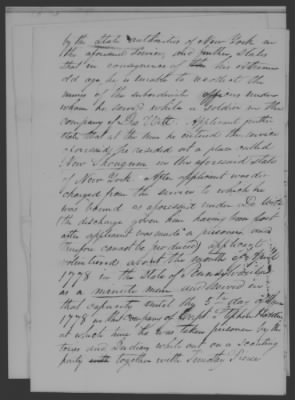 by the State authorities of New York in
the aforesaid service, and further states
that in consequence of his extreme
old age he is unable to recollect the
names of the subordinate officers under
whom he served while a soldier in the
company of Applicant further
states that at the time he entered the service
aforesaid, he resided at a place called
New Shongum in the aforesaid State
of New York. After applicant was dis-
charged from the service to which he
was bound as aforesaid under and
the discharge given him having been lost
after applicant was made a prisoner and
therefore cannot be produced, applicant
volunteered about the month of
1778 in the State of Pennsylvania
as a minute man and served in
that capacity until the 5th day of
1778 in the company of Capt Stephen
at which time he was taken prisoner by the
tories and Indians while out on a scouting
party together with Timothy